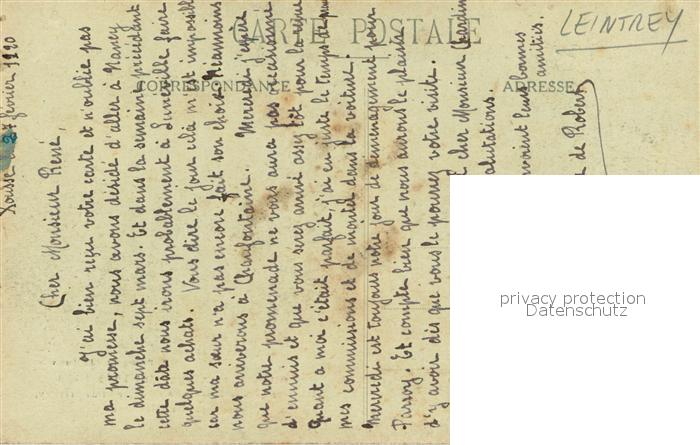 CARTE POSTALE
CORRESPONDANCE
ADRESSE
LEINTREY
27 février 1920
Cher Monsieur René,
J'ai bien reçu votre carte et n'oublie pas
ma promesse, nous avons décidé d'aller à Nancy
le dimanche sept mars. Et dans la semaine précédant
cette dâte nous irons probablement à Lunéville faire
quelques achats. Vous dire le jour cela m'est impossible
car ma sœur n'a pas encore fait son choix. Néanmoins
nous arriverons à Chanfontaine. Mercredi j'espère
que notre promenade ne vous aura pas occasionné
d'ennuis et que vous serez arrivé assez tôt pour la
Quant à moi c'était parfait, j'ai eu juste le temps de
mes commissions et de monter dans la voiture.
Mercredi est toujours notre jour de déménagement pour
Parroy. Et compte bien que nous aurons le plaisir
d'y avoir dès que vous le pourrez votre visite.
cher Monsieur
salutations.
envoient leurs bonnes
amitiés.
de Robert
privacy protection
Datenschutz